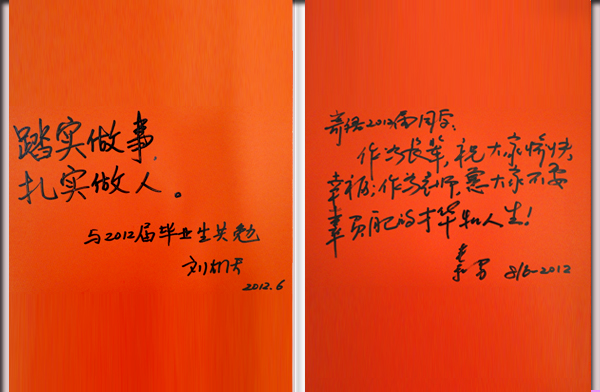 踏实做事,
扎实做人。
与2012届毕业生共勉
2012.6
寄语2012届同学:
作为长辈,祝大家愉快、
幸福;作为老师,愿大家不要
辜负自己的才华和人生!
8/6-2012